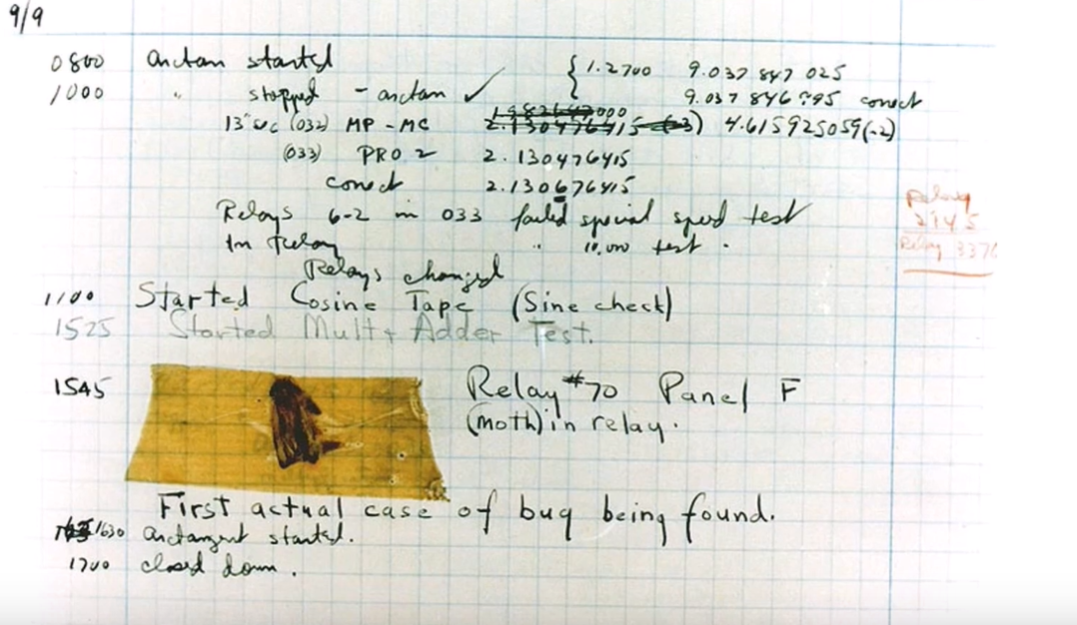 9/9
0800 arctan started { 1.2700 9.037 847 025
1000 " stopped - arctan ✓ 9.037 846 995 correct
13"uc (032) MP - MC 1.982647000 2.130476415 (-3) 4.615925059(-2)
(033) PRO 2 2.130476415
correct 2.130676415
Relays 6-2 in 033 failed special speed test
In relay " 10,000 test .
Relay 2145
Relay 3376
Relays changed
1100 Started Cosine Tape (Sine check)
1525 Started Mult + Adder Test.
1545 Relay #70 Panel F
(moth) in relay.
First actual case of bug being found.
1630 arctangent started.
1700 closed down .